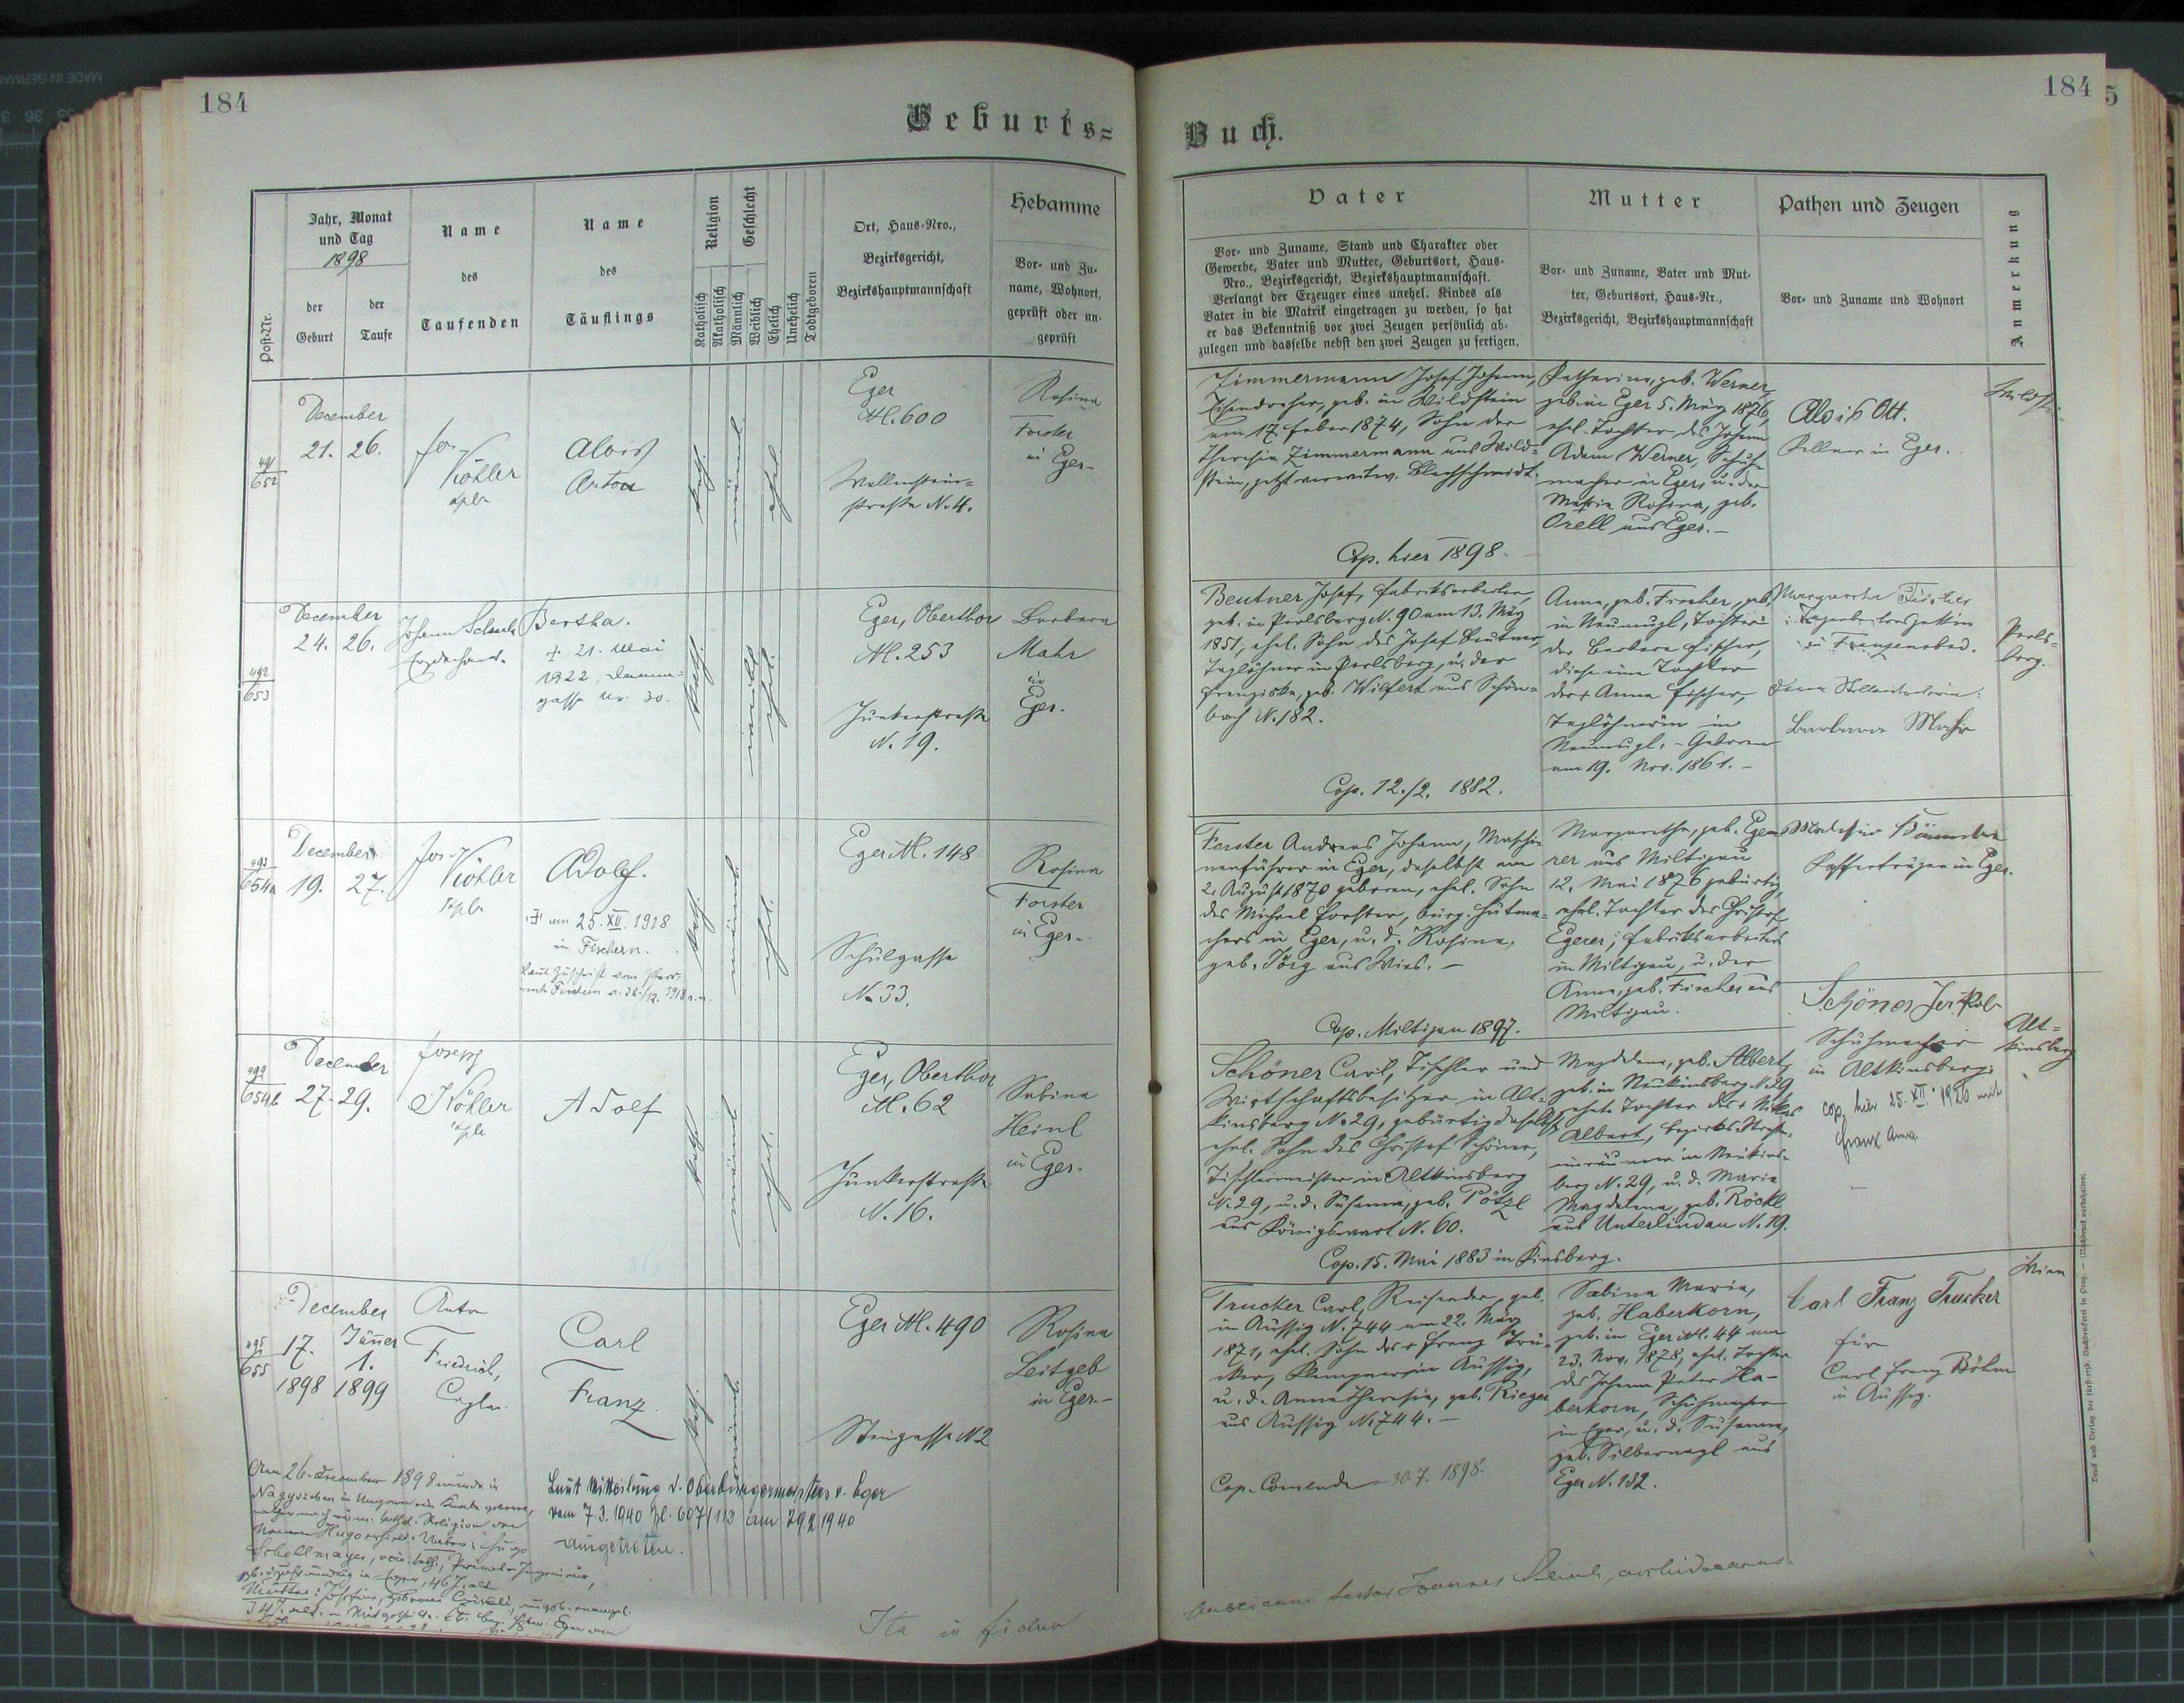 184
Geburts=
Jahr, Monat
und Tag
1898
Post-Nr.
der
Geburt
der
Taufe
Name
des
Taufenden
Name
des
Täuflings
Religion
Geschlecht
Katholisch
Akatholisch
Männlich
Weiblich
Ehelich
Unehelich
Todtgeboren
Ort, Haus-Nro.,
Bezirksgericht,
Bezirkshauptmannschaft
Hebamme
Vor- und Zu-
name, Wohnort,
geprüft oder un-
geprüft
491
652
December
21. 26.
Jos.
Köhler
Alois
Anton
kath.
männl.
ehel.
Eger
N. 600
Wallenstein-
straße N. 4.
Rosina
Forster
in Eger.
492
653
December
24. 26.
Johann
Bertha.
+ 21. Mai
1922
gasse Nr. 30.
kath.
weibl.
ehel.
Eger, Oberthor
N. 253
Junkerstraße
N. 19.
Barbara
Mahr
in
Eger.
493
654a
December
19. 27.
Jos.
Köhler
Adolf.
am 25. XII. 1918
in Fischern.
kath.
männl.
ehel.
Eger N. 148
Schulgasse
N. 33.
Rosina
Forster
in Eger.
494
654b
December
27. 29.
Joseph
Köhler
Adolf
kath.
männl.
ehel.
Eger, Oberthor
N. 62
Junkerstraße
N. 16.
Sabina
Heinl
in Eger.
495
655
December
17.
1898
Jänner
1.
1899
Anton
Friedrich,
Carl
Franz
kath.
männl.
Eger N. 490
Steingasse N 2
Rosina
Leitgeb
in Eger.
Laut Mitteilung d. Oberbürgermeisters v. Eger
vom 7.3.1940 Zl. 607/113 am 29.2.1940
ausgetreten.
Am 26. December 1898 wurde in
Nagyszeben in Ungarn ein Knabe geboren,
Namen Hugo
Schollmayer
Ita in fidem
184
Buch.
Vater
Vor- und Zuname, Stand und Charakter oder
Gewerbe, Vater und Mutter, Geburtsort, Haus-
Nro., Bezirksgericht, Bezirkshauptmannschaft.
Verlangt der Erzeuger eines unehel. Kindes als
Vater in die Matrik eingetragen zu werden, so hat
er das Bekenntniß vor zwei Zeugen persönlich ab-
zulegen und dasselbe nebst den zwei Zeugen zu fertigen.
Mutter
Vor- und Zuname, Vater und Mut-
ter, Geburtsort, Haus-Nr.,
Bezirksgericht, Bezirkshauptmannschaft
Pathen und Zeugen
Vor- und Zuname und Wohnort
Anmerkung
Zimmermann Josef Johann,
Eisendreher, geb. in Wildstein
am 17. Feber 1874, Sohn der
Theresia Zimmermann aus Wild-
stein, jetzt verwitw. Blechschmidt.
Cop. hier 1898.
Katharina, geb. Werner,
geb. in Eger 5. März 1876,
ehel. Tochter des Johann
Adam Werner, Schuh-
macher in Eger, u. der
Maria Rosina, geb.
Orell aus Eger.
Alois Ott.
Kellner in Eger.
Beutner Josef, Fabriksarbeiter,
geb. in Perlsberg N. 90 am 13. März
1851, ehel. Sohn des Josef Beutner,
Taglöhner in Perlsberg, u. der
Franziska, geb. Wilfert aus Schön-
bach N. 182.
Cop. 12./2. 1882.
Anna, geb. Fischer, geb.
in Neumugl, Tochter
der Barbara Fischer,
diese eine Tochter
der + Anna Fischer,
Taglöhnerin in
Neumugl. - Geboren
am 19. Nov. 1861.
Margaretha Fischer
in Franzensbad.
Barbara Mahr
Perls-
berg.
Forster Andreas Johann, Maschi-
nenführer in Eger, daselbst am
2. August 1870 geboren, ehel. Sohn
des Michael Forster, bürg. Hutma-
chers in Eger, u. d. Rosina,
geb. Jörg aus Wies.
Cop. Miltigau 1897.
Margaretha, geb. Ege-
rer aus Miltigau
12. Mai 1876 gebürtig,
ehel. Tochter des Christof
Egerer, Fabriksarbeiter
in Miltigau, u. der
Anna, geb. Fischer aus
Miltigau.
Kofferträger in Eger.
Schöner Carl, Tischler und
Wirtschaftsbesitzer in Alt-
kinsberg N. 29, gebürtig daselbst
ehel. Sohn des Christof Schöner,
Tischlermeister in Altkinsberg
N. 29, u. d. Susanna, geb. Pötzl
aus Königswart N. 60.
Cop. 15. Mai 1883 in Kinsberg.
Magdalena, geb. Albert,
geb. in Neukinsberg N. 29,
ehel. Tochter des + Niklas
Albert, Bezirks-Straßen-
einräumer in Neukins-
berg N. 29, u. d. Maria
Magdalena, geb. Röckl
aus Unterlindau N. 19.
Schöner
Schuhmacher
in Altkinsberg.
cop. hier 25. XII. 1920 mit
Franz Anna.
Alt-
kinsberg
Trucker Carl, Reisender, geb.
in Aussig N. 744 am 22. März
1871, ehel. Sohn des + Franz Tru-
cker, Klempner in Aussig,
u. d. Anna Theresia, geb. Rieger
aus Aussig N. 744.
Cop. Comenda 30. 7. 1898.
Sabina Maria,
geb. Haberkorn,
geb. in Eger N. 44 am
23. Nov. 1878, ehel. Tochter
des Johann Peter Ha-
berkorn, Schuhmacher
in Eger, u. d. Susanna,
geb. Silbernagl aus
Eger N. 132.
Carl Franz Trucker
für
Carl Franz Böhm
in Aussig.
Wien